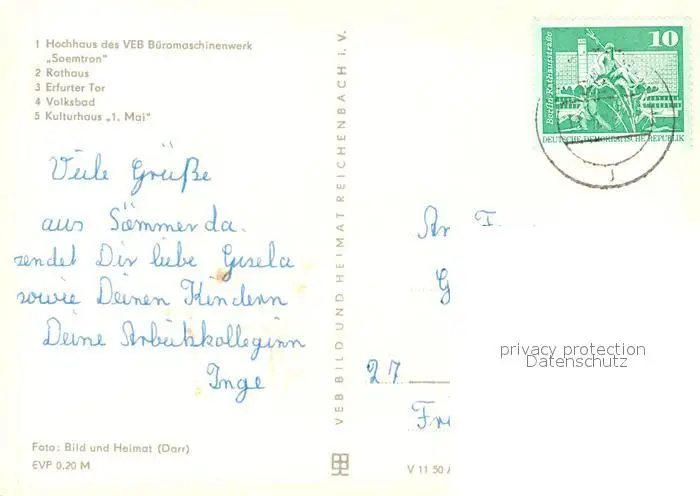 1 Hochhaus des VEB Büromaschinenwerk
„Soemtron"
2 Rathaus
3 Erfurter Tor
4 Volksbad
5 Kulturhaus „1. Mai"
Viele Grüße
aus Sömmerda.
sendet Dir liebe Gisela
sowie Deinen Kindern
Deine Arbeitskollegin
Inge
Foto: Bild und Heimat (Darr)
EVP 0,20 M
VEB BILD UND HEIMAT REICHENBACH i. V.
10
Berlin-Rathausstraße
DEUTSCHE DEMOKRATISCHE REPUBLIK
An
G
27
V 11 50
privacy protection
Datenschutz